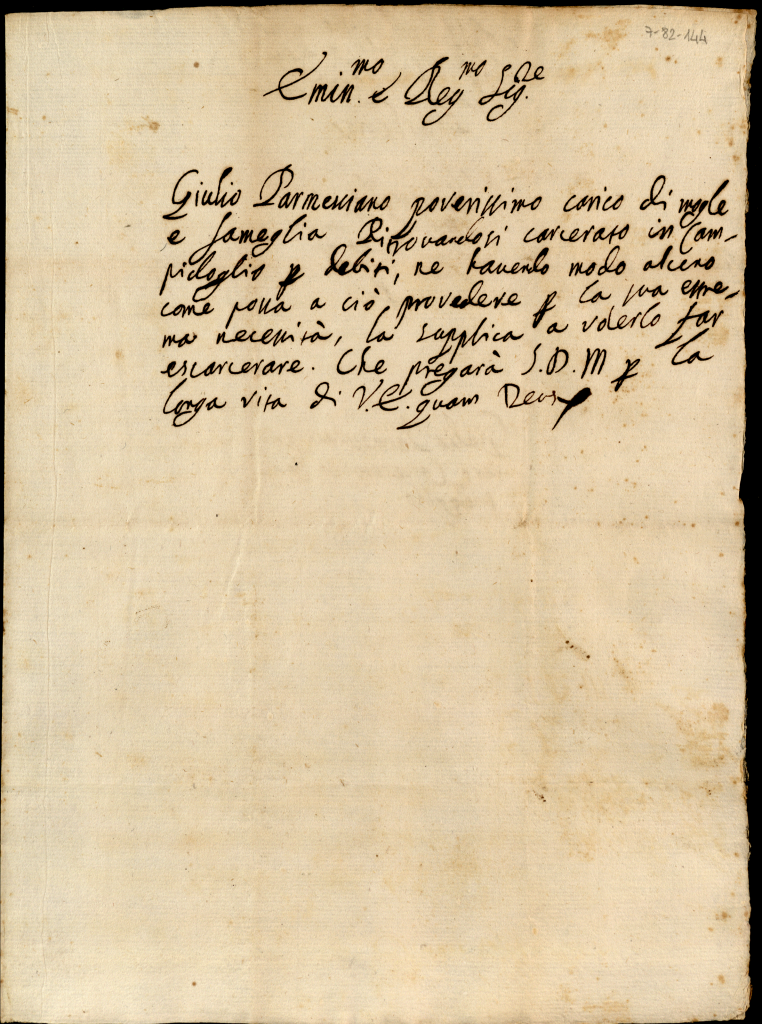 7-82-144
Emin.mo e Reu.mo Sig.re
Giulio Parmesciano poverissimo carico di mogle
e fameglia Ritrovandosi carcerato in Cam-
pidoglio p debiti, ne havendo modo alcuno
come possa a ciò provedere p la sua estre-
ma necessità, la supplica a volerlo far
escarcerare. Che pregarà S.D.M p la
longa vita di V.E. quam Deus